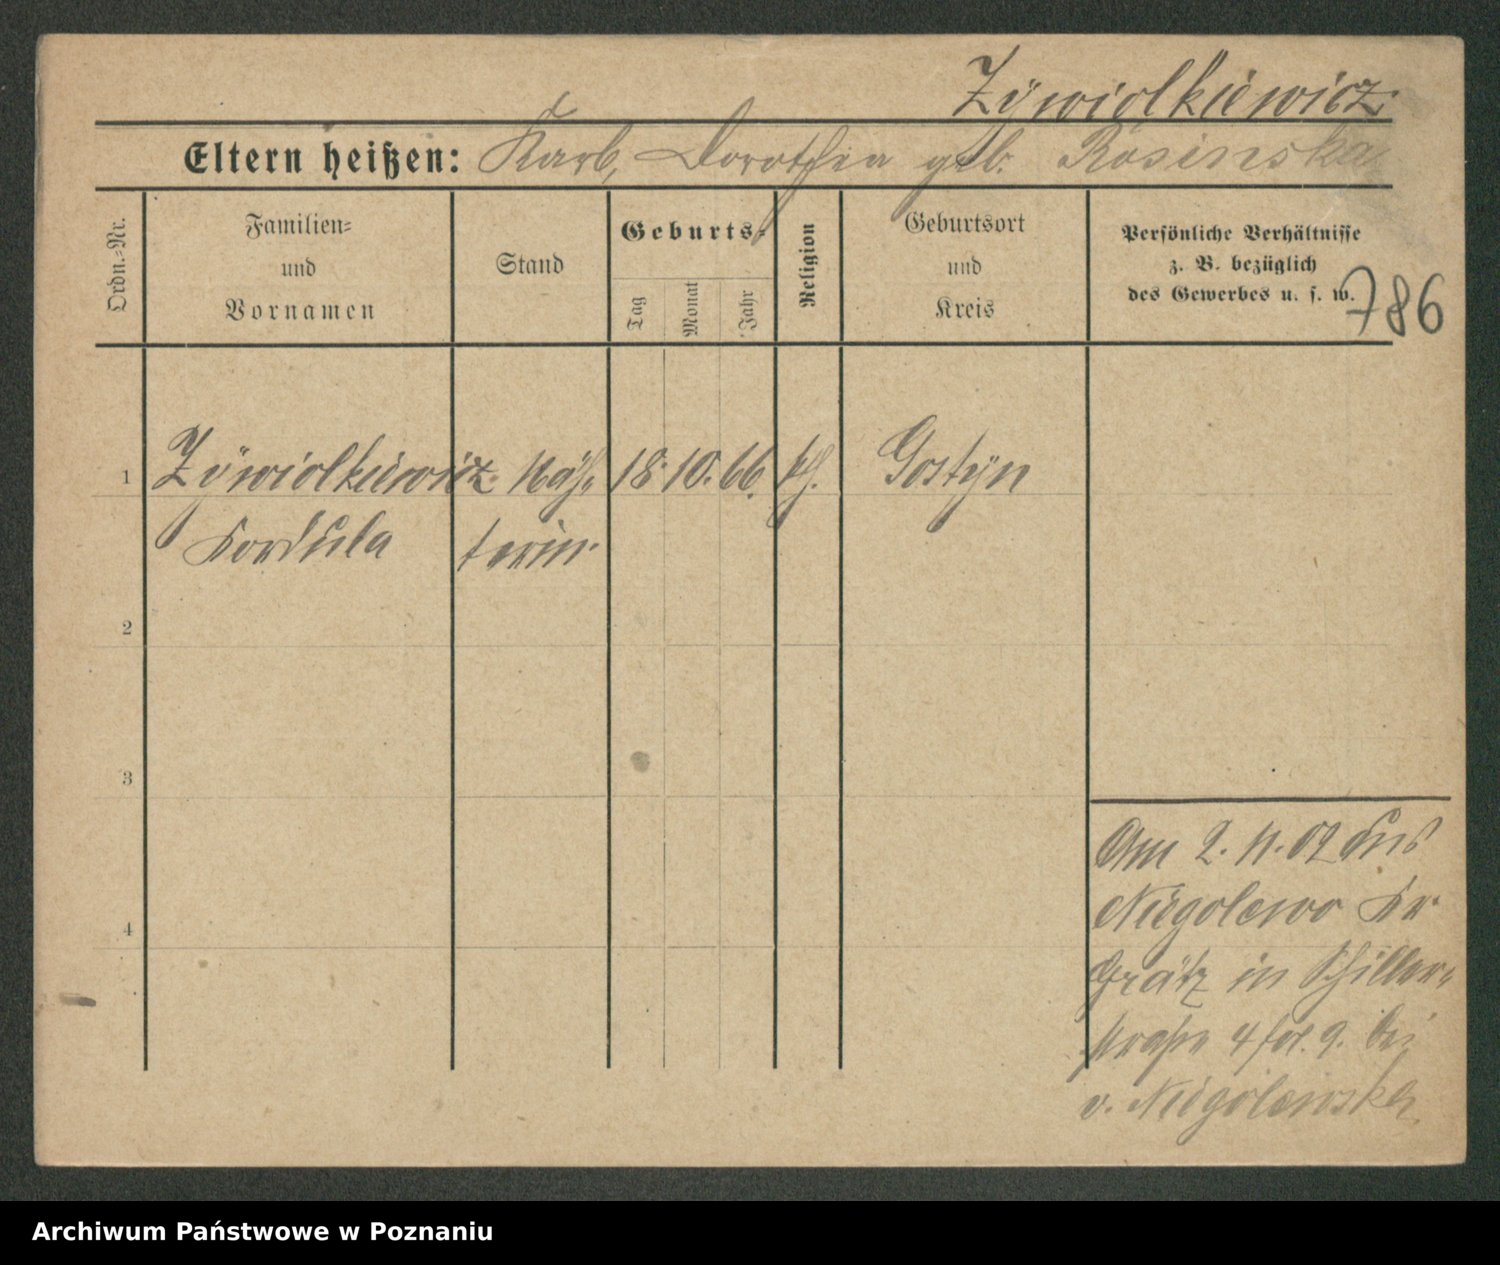 Zÿwiolkiewicz
Eltern heißen: Karl, Dorothea geb. Rosinska
Ordn.-Nr.
Familien-
und
Vornamen
Stand
Geburts-
Tag
Monat
Jahr
Religion
Geburtsort
und
Kreis
Persönliche Verhältnisse
z. B. bezüglich
des Gewerbes u. s. w.
786
1 Zÿwiolkiewicz Näh- 18. 10. 66. kh. Gostÿn
Kordula terin
2
3
4
Am 2. 11. 02 aus
Niegolewo Kr
Grätz in Schiller-
straße 4 bei
v. Niegolewska
Archiwum Państwowe w Poznaniu